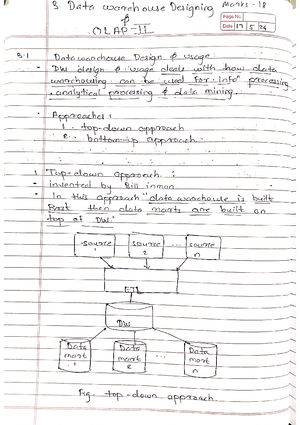 3. Data warehouse Designing
&
OLAP-II
Marks - 18
Page No.
Date 17 5 24
3.1 Data warehouse Design & usage:
- DW design & usage deals with how data
warehousing can be used for info processing
, analytical processing & data mining.
• Approaches:
1. top-down approach
2. bottom-up approach
1 Top-down approach:
- invented by Bill inmon
- In this approach "data warehouse is built
first then data marts are built on
top of DW."
source
1
source
2
...
source
n
ETL
DW
Data
mart
1
Data
mart
2
Data
mart
n
Fig. top-down approach